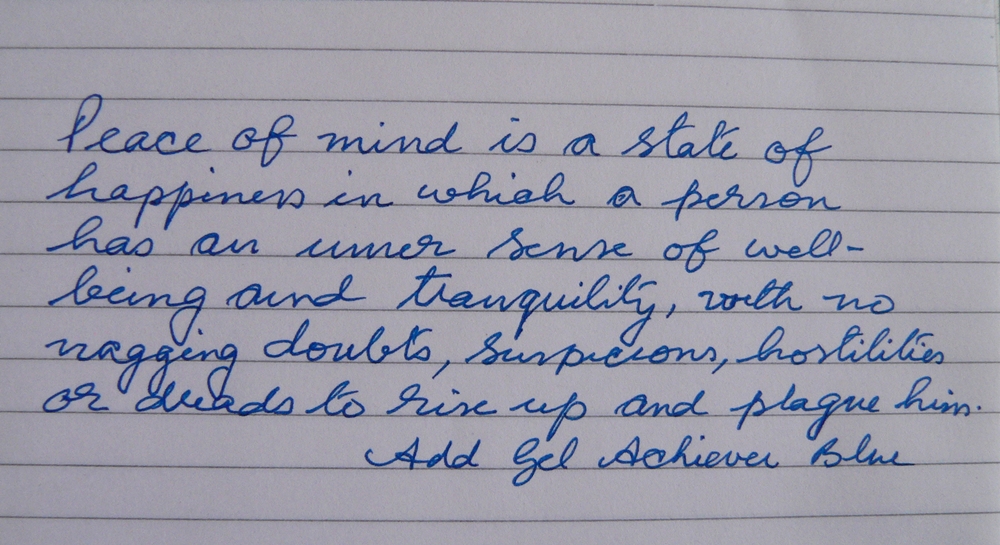 Peace of mind is a state of
happiness in which a person
has an inner sense of well-
being and tranquility, with no
nagging doubts, suspicions, hostilities
or dreads to rise up and plague him.
Add Gel Achiever Blue